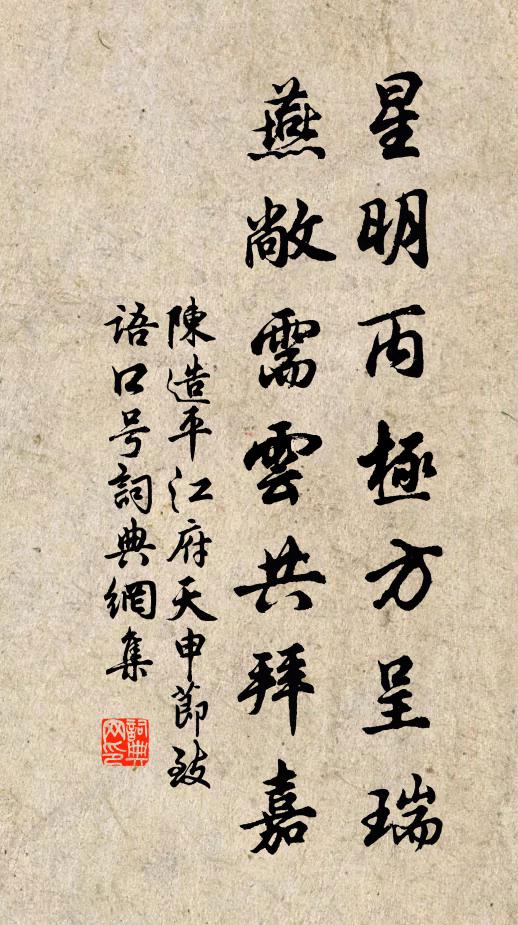 星明丙極方呈瑞
燕敞需雲共拜嘉
陳造平江府天申節致
語口号詞典網集
詞典
网印